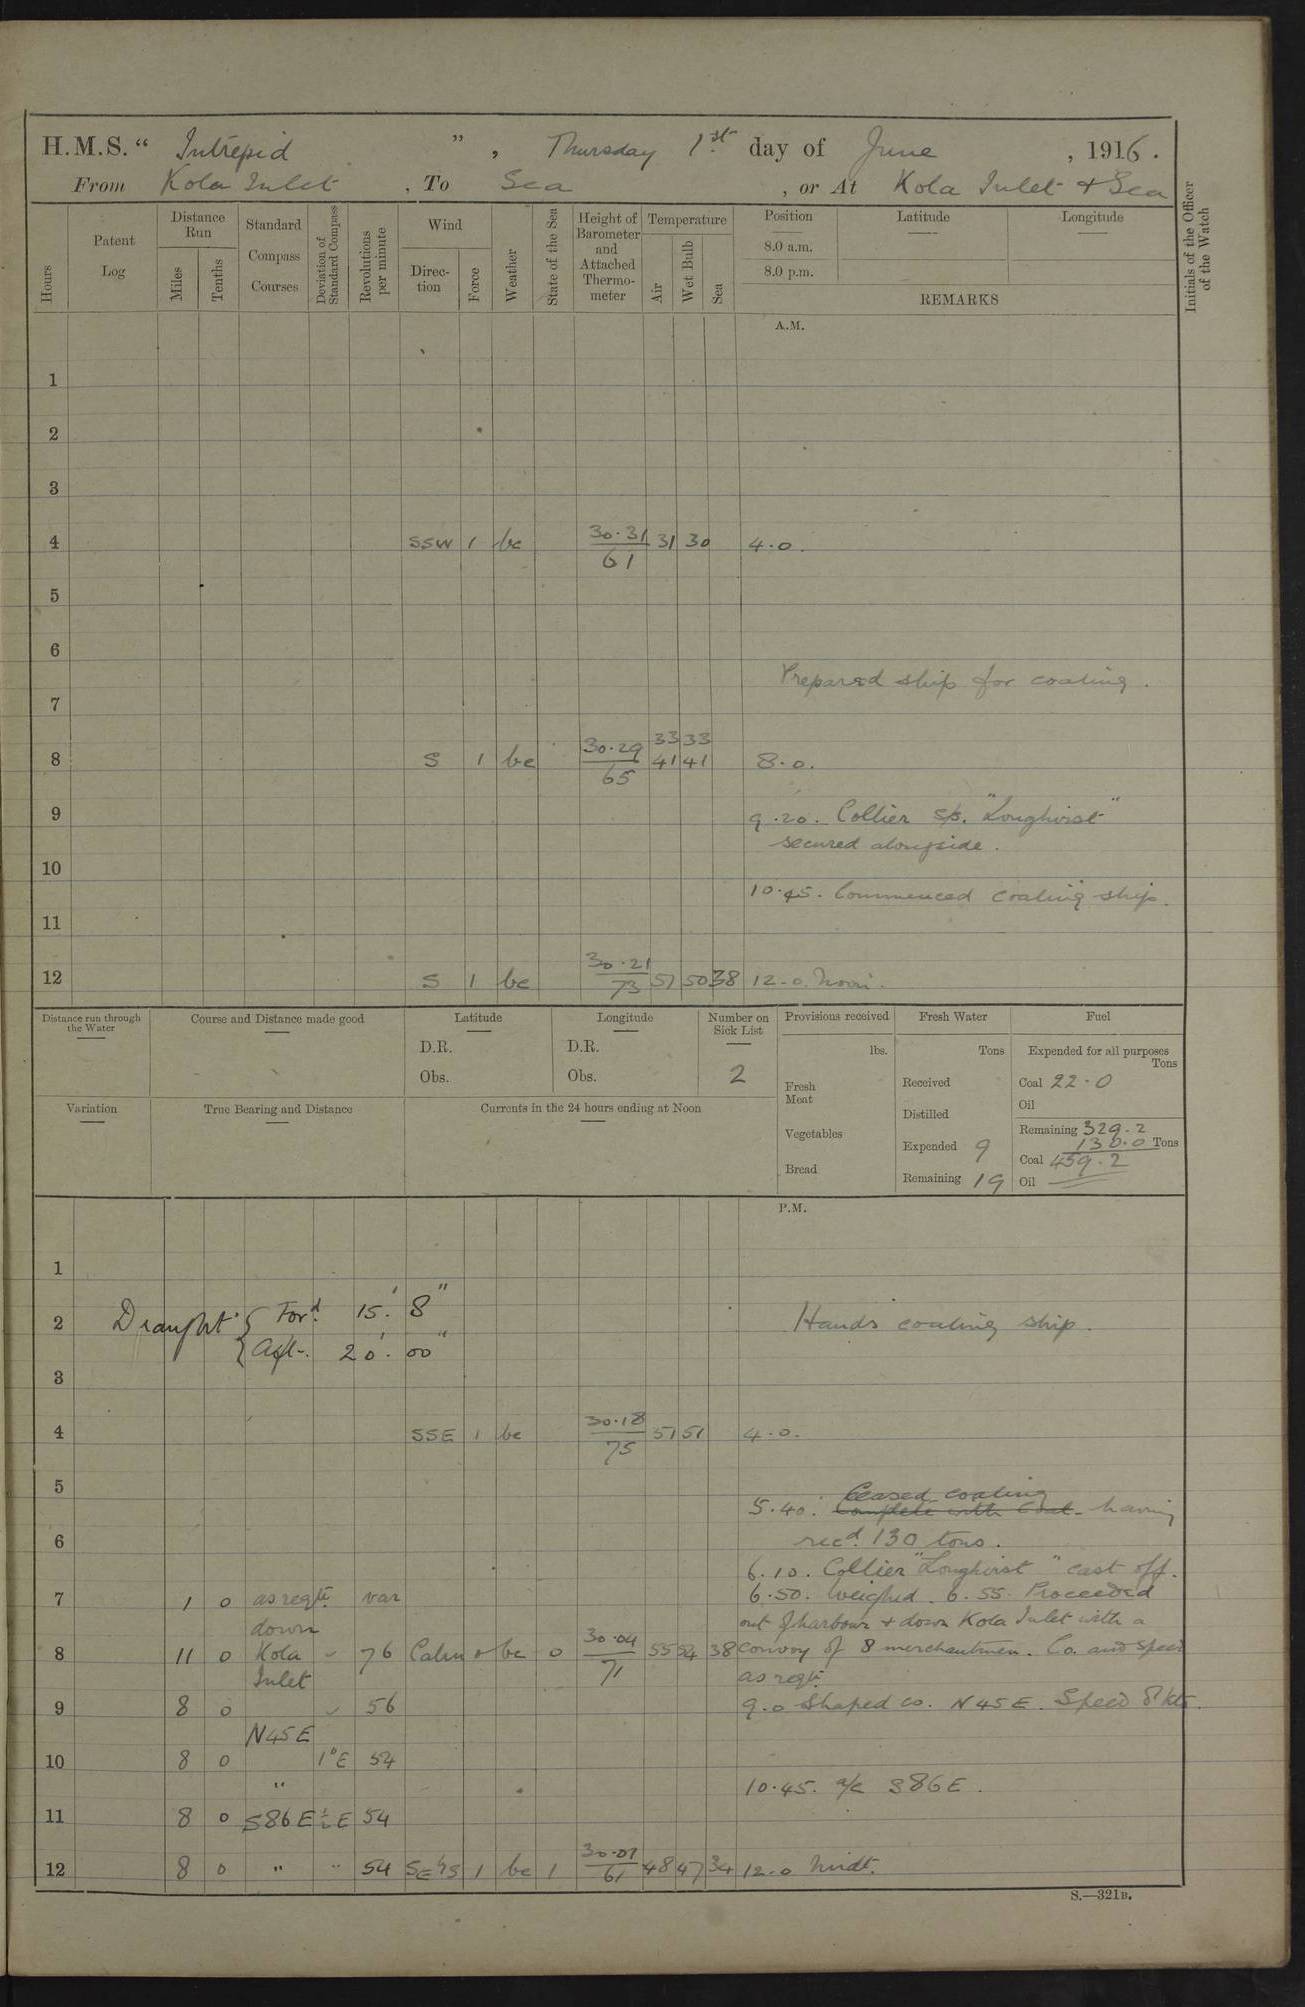 H.M.S. " Intrepid " , Thursday 1st day of June , 1916 .
From Kola Inlet , To Sea , or At Kola Inlet & Sea
Hours Patent Log Distance Run Miles Tenths Standard Compass Courses Deviation of Standard Compass Revolutions per minute Wind Direc-tion Force Weather State of the Sea Height of Barometer and Attached Thermo-meter Temperature Air Wet Bulb Sea Position 8.0 a.m. 8.0 p.m. Latitude Longitude REMARKS Initials of the Officer of the Watch
A.M.
1
2
3
4 SSW 1 bc 30.31 / 61 31 30 4.0.
5
6
Prepared ship for coaling.
7
33 33
8 S 1 bc 30.29 / 65 41 41 8.0.
9 9.20. Collier s/s. "Longhirst"
secured alongside.
10
10.45. Commenced coaling ship.
11
12 S 1 bc 30.21 / 73 51 50 38 12.0. Noon.
Distance run through the Water Course and Distance made good Latitude Longitude Number on Sick List Provisions received Fresh Water Fuel
D.R. D.R. lbs. Tons Expended for all purposes Tons
Obs. Obs. 2 Fresh Meat Received Coal 22.0
Oil
Variation True Bearing and Distance Currents in the 24 hours ending at Noon Distilled
Remaining 329.2
Vegetables Expended 9 130.0 Tons
Coal 459.2
Bread Remaining 19 Oil
P.M.
1
2 Draught { Ford. 15' 8" Hands coaling ship.
Aft. 20' 00"
3
4 SSE 1 bc 30.18 / 75 51 51 4.0.
5
Ceased coaling
5.40. Complete with Coal having
6 recd. 130 tons.
6.10. Collier "Longhirst" cast off.
7 1 0 as reqte var 6.50. Weighed. 6.55. Proceeded
down out of harbour & down Kola Inlet with a
8 11 0 Kola 76 Calm 0 bc 0 30.04 / 71 55 54 38 convoy of 8 merchantmen. Co. and speed
Inlet as reqte.
9 8 0 56 9.0 Shaped co. N45E. Speed 8 kts.
N45E
10 8 0 1°E 54
" 10.45. a/c S86E.
11 8 0 S86E ½E 54
12 8 0 " " 54 SE'ly 1 bc 1 30.01 / 61 48 47 34 12.0 Midt.
S.—321B.